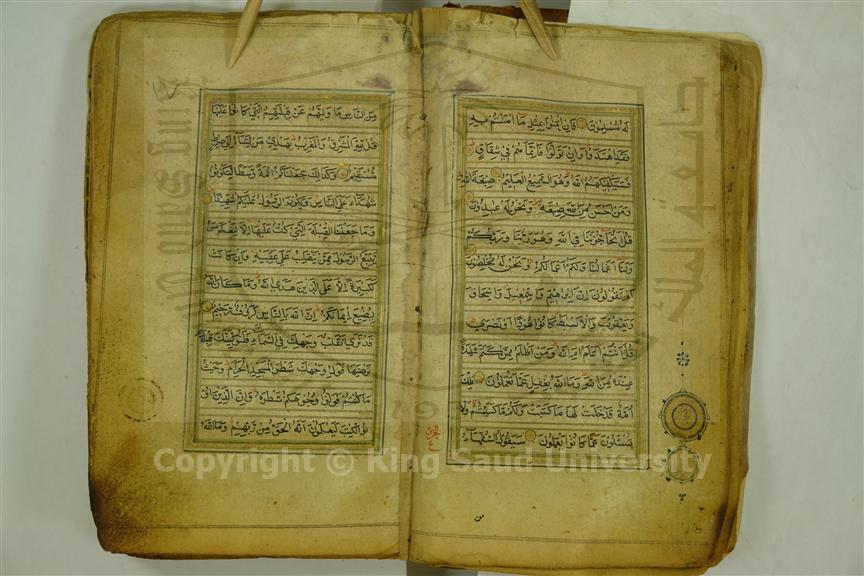 له مسلمون فان امنوا بمثل ما امنتم به
فقد اهتدوا وان تولوا فانما هم في شقاق
فسيكفيكهم الله وهو السميع العليم صبغة الله
ومن احسن من الله صبغة ونحن له عبدون
قل اتحاجوننا في الله وهو ربنا وربكم
ولنا اعمالنا ولكم اعمالكم ونحن له مخلصون
ام تقولون ان ابرهيم واسمعيل واسحاق
ويعقوب والاسباط كانوا هودا او نصرى
قل ءانتم اعلم ام الله ومن اظلم ممن كتم شهدة
عنده من الله وما الله بغفل عما تعملون تلك
امة قد خلت لها ما كسبت ولكم ما كسبتم ولا
تسئلون عما كانوا يعملون سيقول السفهاء
من
من الناس ما وليهم عن قبلتهم التي كانوا عليها
قل لله المشرق والمغرب يهدي من يشاء الى صراط
مستقيم وكذلك جعلناكم امة وسطا لتكونوا
شهداء على الناس ويكون الرسول عليكم شهيدا
وما جعلنا القبلة التي كنت عليها الا لنعلم من
يتبع الرسول ممن ينقلب على عقبيه وان كانت
لكبيرة الا على الذين هدى الله وما كان الله
ليضيع ايمانكم ان الله بالناس لرؤف رحيم
قد نرى تقلب وجهك في السماء فلنولينك قبلة
ترضيها فول وجهك شطر المسجد الحرام وحيث
ما كنتم فولوا وجوهكم شطره وان الذين او
توا الكتب ليعلمون انه الحق من ربهم وما الله
Copyright © King Saud University